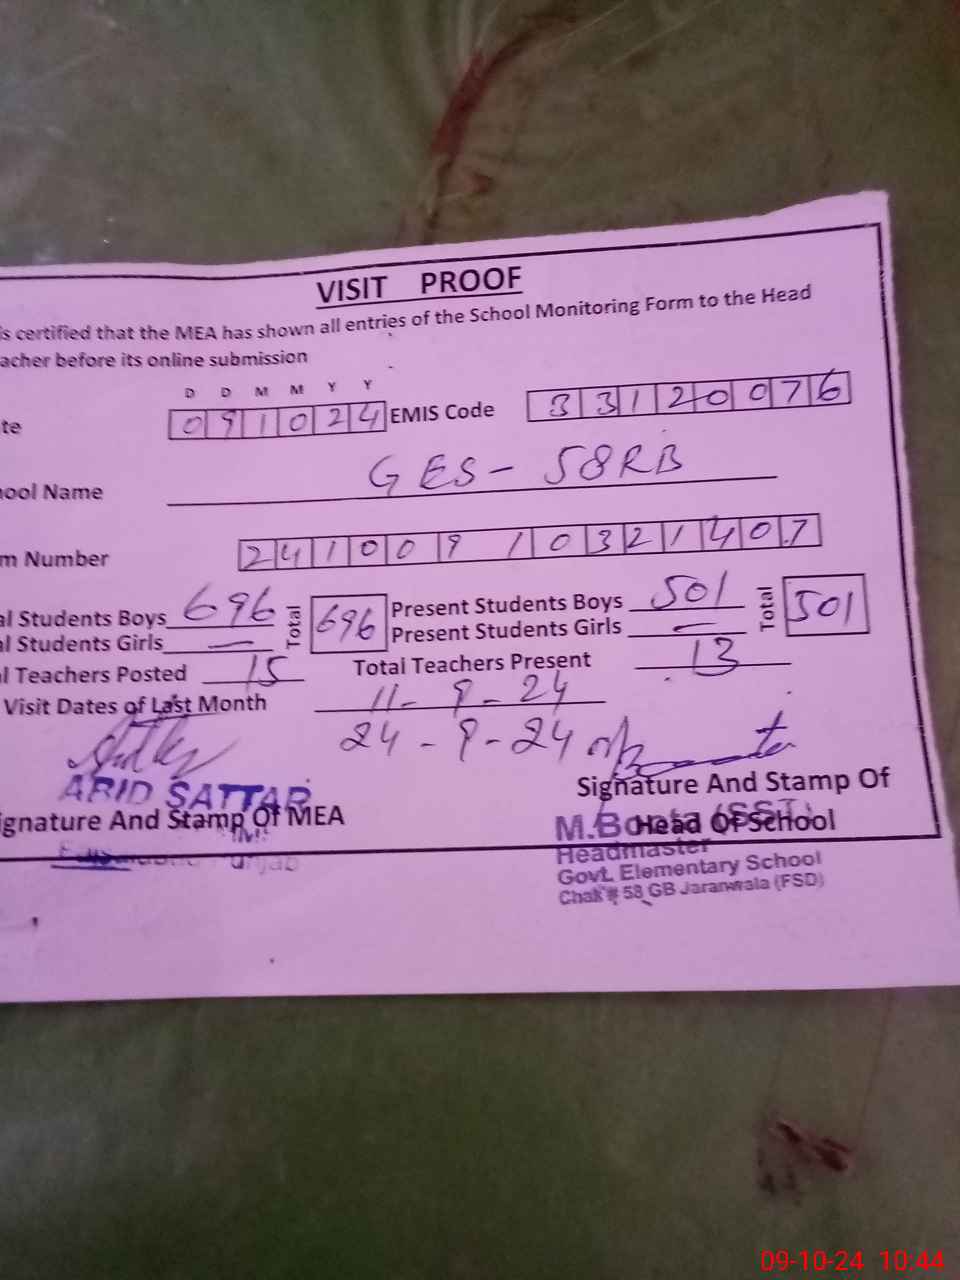 VISIT PROOF
is certified that the MEA has shown all entries of the School Monitoring Form to the Head
acher before its online submission
D D M M Y Y
te 091024 EMIS Code 33120076
ool Name GES - 58RB
m Number 241009 10321407
al Students Boys 696 Total 696 Present Students Boys 501 Total 501
al Students Girls — Present Students Girls —
l Teachers Posted 15 Total Teachers Present 13
Visit Dates of Last Month 11-9-24
24-9-24
ARID SATTAR
ignature And Stamp Of MEA
Signature And Stamp Of
Head Of School
M.Boota (SST)
Headmaster
Govt. Elementary School
Chak # 58 GB Jaranwala (FSD)
09-10-24 10:44